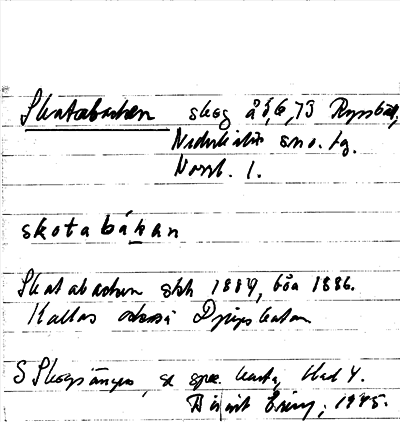 Skatabacken skog å 5,6,73 Ryssbält,
Nederkalix sn o. tg.
Norrb. l.
skotabákan
Skatabacken skh 1889, båa 1886.
Kallas också Djupskatan
S Skogsängen, se spec. karta, blad 4.
1945.